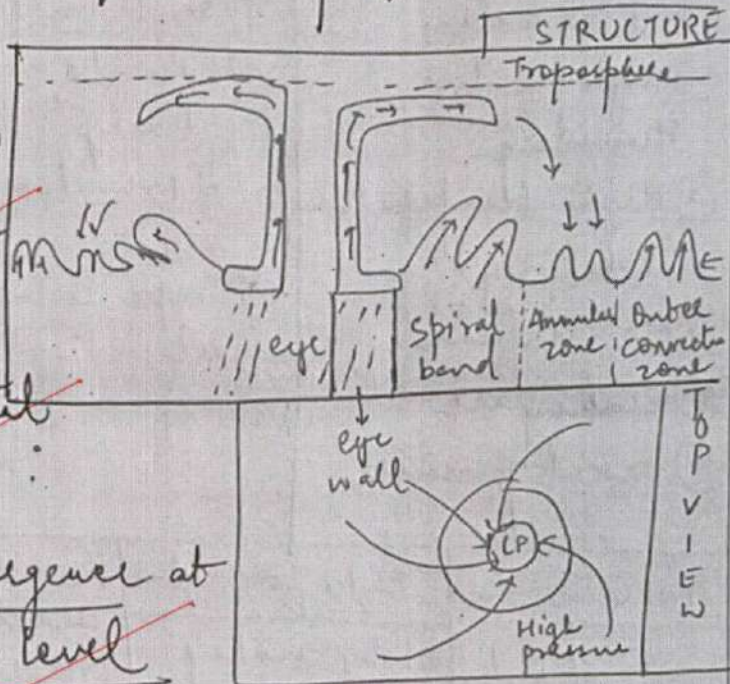 STRUCTURE
Troposphere
eye
Spiral
band
Annular
zone
Outer
convection
zone
eye
wall
LP
High
pressure
TOP VIEW
at
level